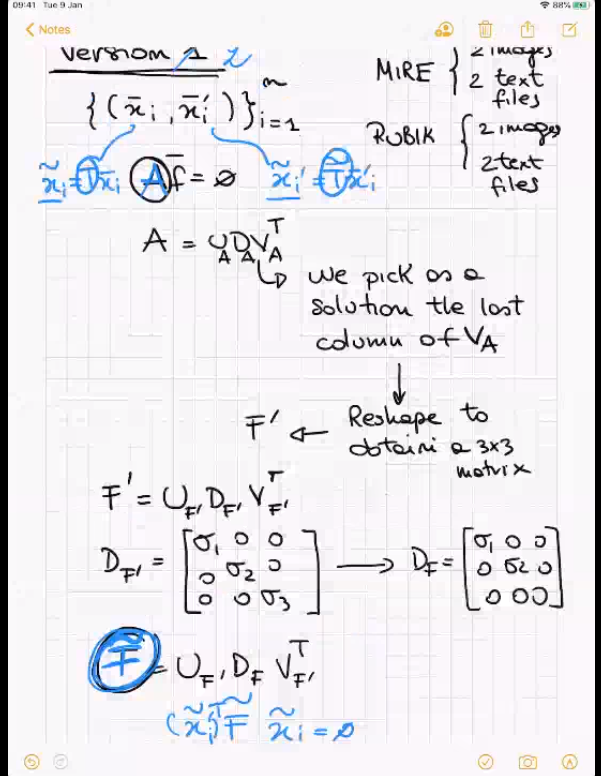 09:41 Tue 9 Jan
88%
Notes
Version 1 2
{(x̄i, x̄i')}ⁿi=1
MIRE { 2 images
2 text
files
RUBIK { 2 images
2 text
files
x̃i = Tx̄i
A f̄ = 0
x̃i' = T̃x̄'i
A = U_A D_A V_A^T
we pick as a
solution the last
column of V_A
Reshape to
obtain a 3x3
matrix
F'
F' = U_F' D_F' V_F'^T
D_F' = [σ1 0 0
0 σ2 0
0 0 σ3]
D_F = [σ1 0 0
0 σ2 0
0 0 0]
F̃ = U_F' D_F V_F'^T
(x̃i')^T F̃ x̃i = 0